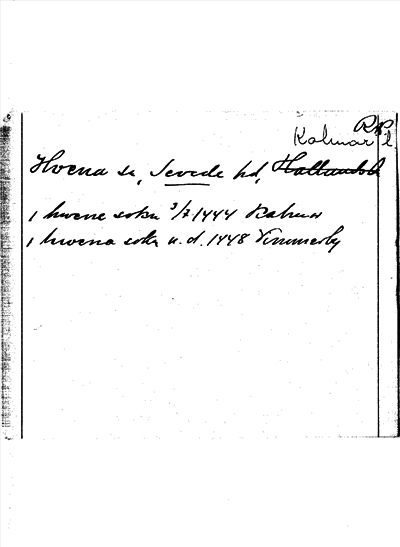 RAp
Kalmar l
Hvena sn, Sevede hd, Hallands l
i hwene sokn 3/7 1444 Kalmar
i hwena sokn u.d. 1448 Vimmerby